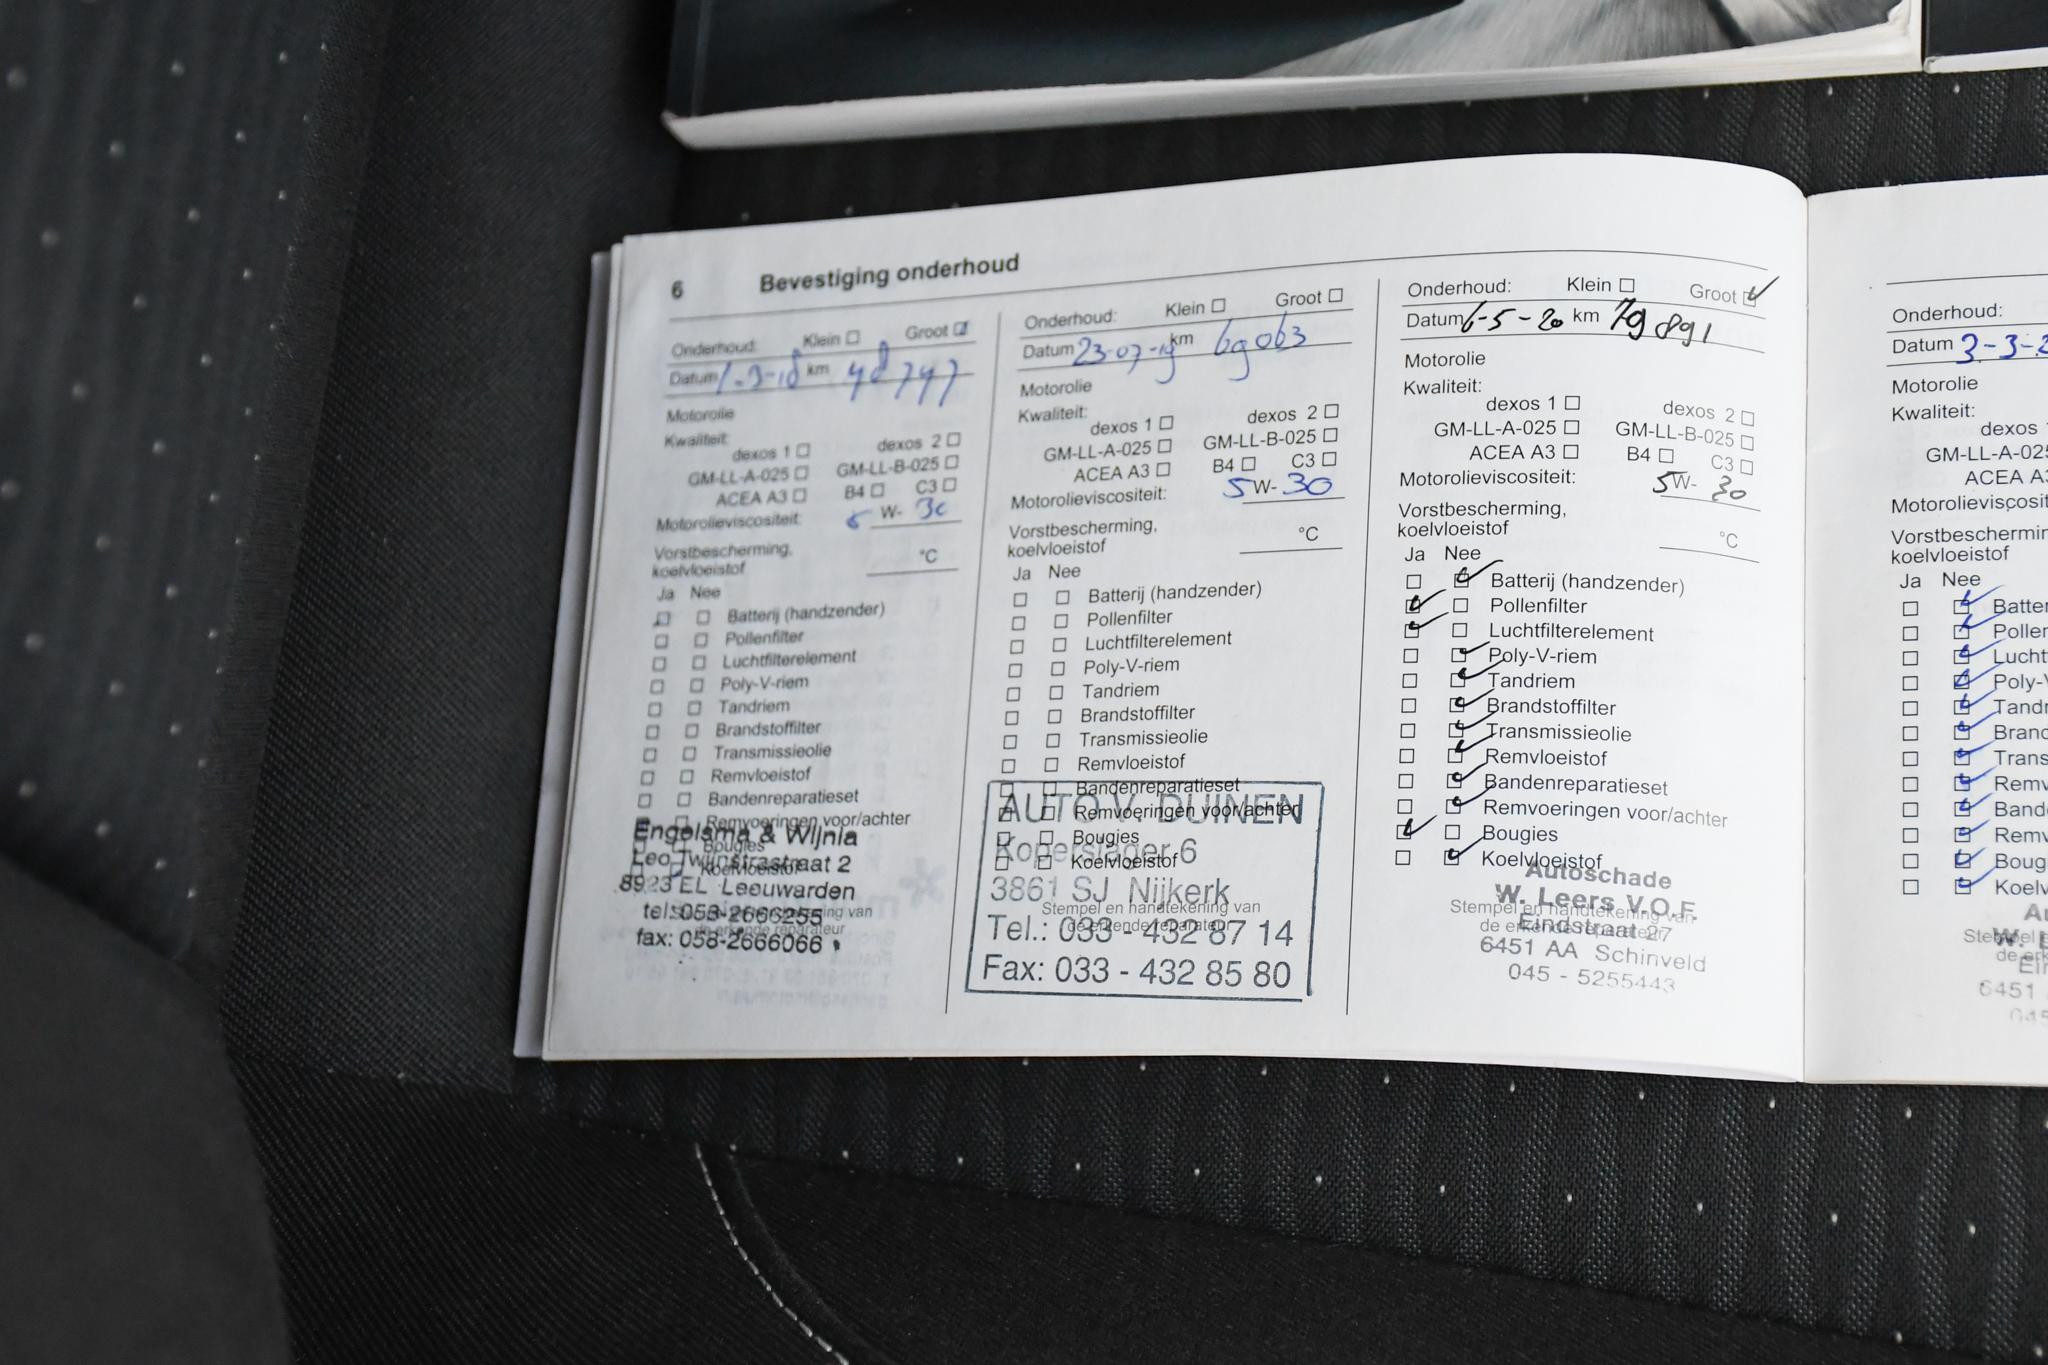 6 Bevestiging onderhoud
Onderhoud: Klein Groot
Datum 1-3-18 km 48747
Motorolie
Kwaliteit:
dexos 1 dexos 2
GM-LL-A-025 GM-LL-B-025
ACEA A3 B4 C3
Motorolieviscositeit: 5 W- 30
Vorstbescherming,
koelvloeistof °C
Ja Nee
Batterij (handzender)
Pollenfilter
Luchtfilterelement
Poly-V-riem
Tandriem
Brandstoffilter
Transmissieolie
Remvloeistof
Bandenreparatieset
Remvoeringen voor/achter
Bougies
Koelvloeistof
Engelsma & Wijnia
Leo Twijnstrastraat 2
8923 EL Leeuwarden
tel:058-2666255
fax: 058-2666066
de erkende reparateur
Onderhoud: Klein Groot
Datum 23-07-19 km 69063
Motorolie
Kwaliteit:
dexos 1 dexos 2
GM-LL-A-025 GM-LL-B-025
ACEA A3 B4 C3
Motorolieviscositeit: 5 W- 30
Vorstbescherming,
koelvloeistof °C
Ja Nee
Batterij (handzender)
Pollenfilter
Luchtfilterelement
Poly-V-riem
Tandriem
Brandstoffilter
Transmissieolie
Remvloeistof
Bandenreparatieset
Remvoeringen voor/achter
Bougies
Koelvloeistof
AUTO V. DUINEN
Koperslager 6
3861 SJ Nijkerk
Stempel en handtekening van
de erkende reparateur
Tel.: 033 - 432 87 14
Fax: 033 - 432 85 80
Onderhoud: Klein Groot
Datum 6-5-20 km 79891
Motorolie
Kwaliteit:
dexos 1 dexos 2
GM-LL-A-025 GM-LL-B-025
ACEA A3 B4 C3
Motorolieviscositeit: 5W- 30
Vorstbescherming,
koelvloeistof °C
Ja Nee
Batterij (handzender)
Pollenfilter
Luchtfilterelement
Poly-V-riem
Tandriem
Brandstoffilter
Transmissieolie
Remvloeistof
Bandenreparatieset
Remvoeringen voor/achter
Bougies
Koelvloeistof
Autoschade
W. Leers V.O.F.
Stempel en handtekening van
de erkende reparateur
Eindstraat 27
6451 AA Schinveld
045 - 5255443
Onderhoud:
Datum 3-3-2
Motorolie
Kwaliteit:
dexos
GM-LL-A-025
ACEA A3
Motorolieviscosit
Vorstbeschermin
koelvloeistof
Ja Nee
Batter
Pollen
Lucht
Poly-V
Tandr
Brand
Trans
Remv
Band
Remv
Boug
Koelv
W. L
Stempel
de erk
6451
045